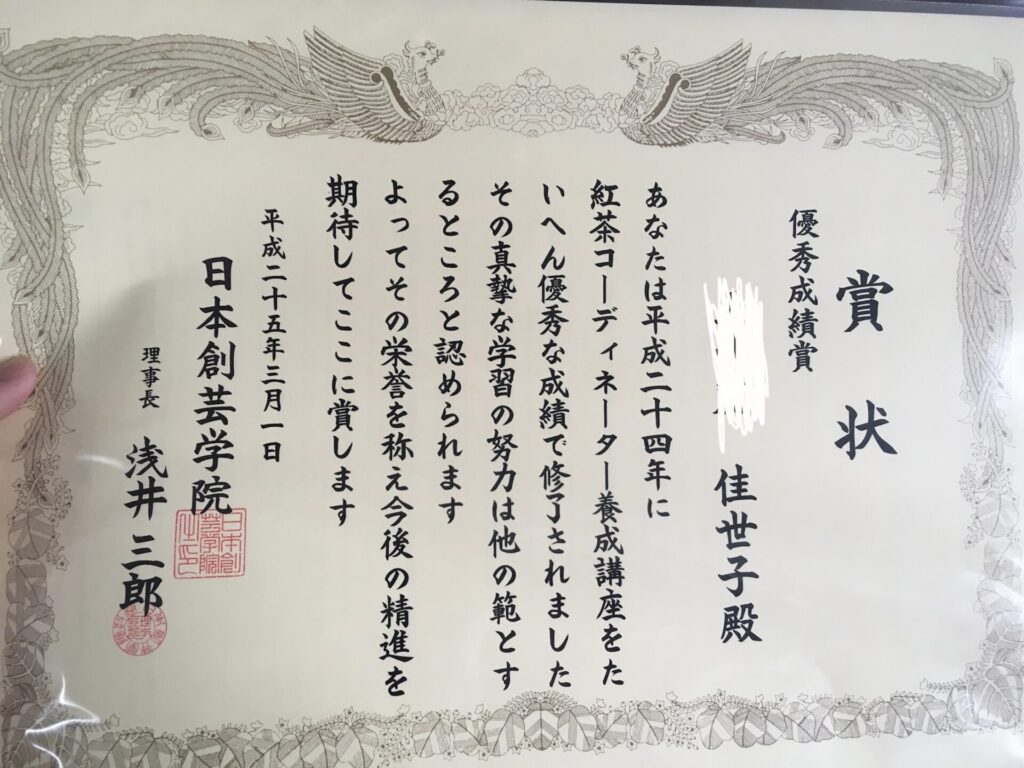 賞状
優秀成績賞
佳世子殿
あなたは平成二十四年に
紅茶コーディネーター養成講座をた
いへん優秀な成績で修了されました
その真摯な学習の努力は他の範とす
るところと認められます
よってその栄誉を称え今後の精進を
期待してここに賞します
平成二十五年三月一日
日本創芸学院
理事長 浅井三郎
日本創
芸学院
之印